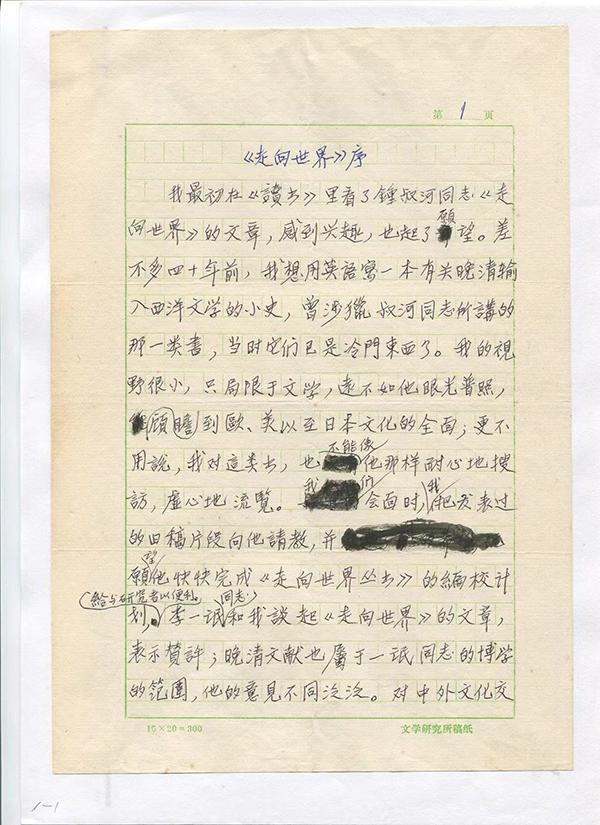 第 1 页
《走向世界》序
我最初在《讀书》里看了鍾叔河同志《走
向世界》的文章，感到兴趣，也起了願望。差
不多四十年前，我想用英語寫一本有关晚清输
入西洋文学的小史，曾涉獵叔河同志所講的
那一类書，当时它们已是冷門東西了。我的視
野很小，只局限于文学，遠不如他眼光普照，
顧瞻到歐、美以至日本文化的全面；更不
用說，我对這类书，也不能像他那样耐心地搜
訪，虚心地流覽。我们会面时，我把发表过
的旧稿片段向他請教，并
願望他快快完成《走向世界丛书》的編校计
划，給与研究者以便利。李一氓同志和我談起《走向世界》的文章，
表示贊許；晚清文献也屬于一氓同志的博学
的范圍，他的意見不同泛泛。对中外文化交
15×20=300 文学研究所稿纸
1-1